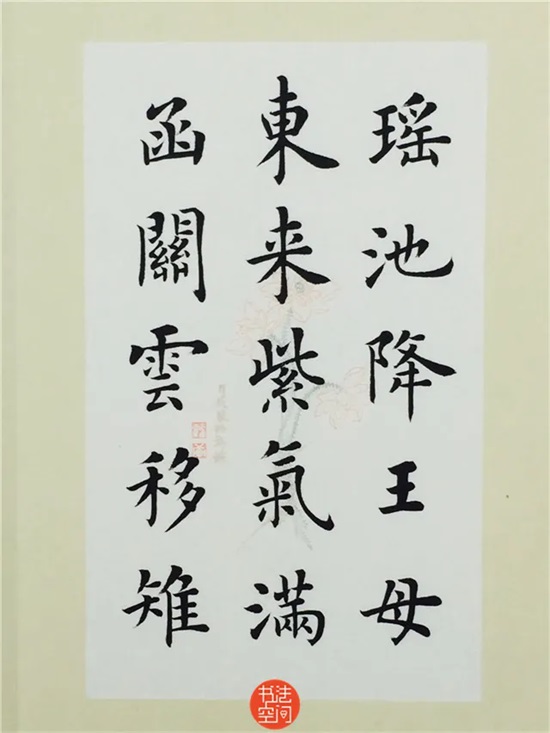 瑶池降王母
東来紫氣滿
函關雲移雉
书法空间